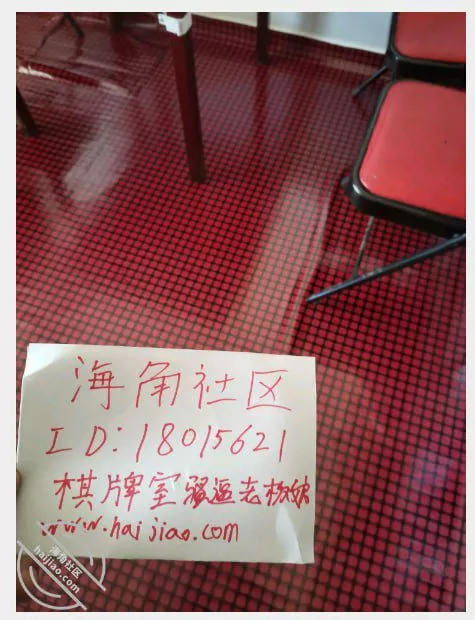 海角社区
ID:18015621
棋牌室骚逼老板娘
www.haijiao.com
海角社区
haijiao.com